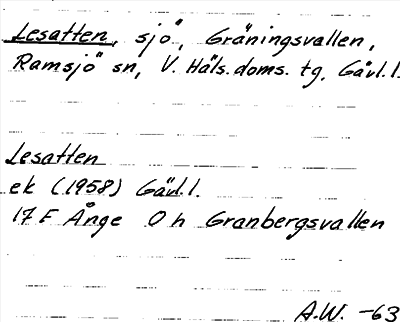 Lesatten, sjö, Gräningsvallen,
Ramsjö sn, V. Häls. doms. tg, Gävl. l.
Lesatten
ek (1958) Gävl. l.
17 F Ånge 0 h Granbergsvallen
A.W. -63